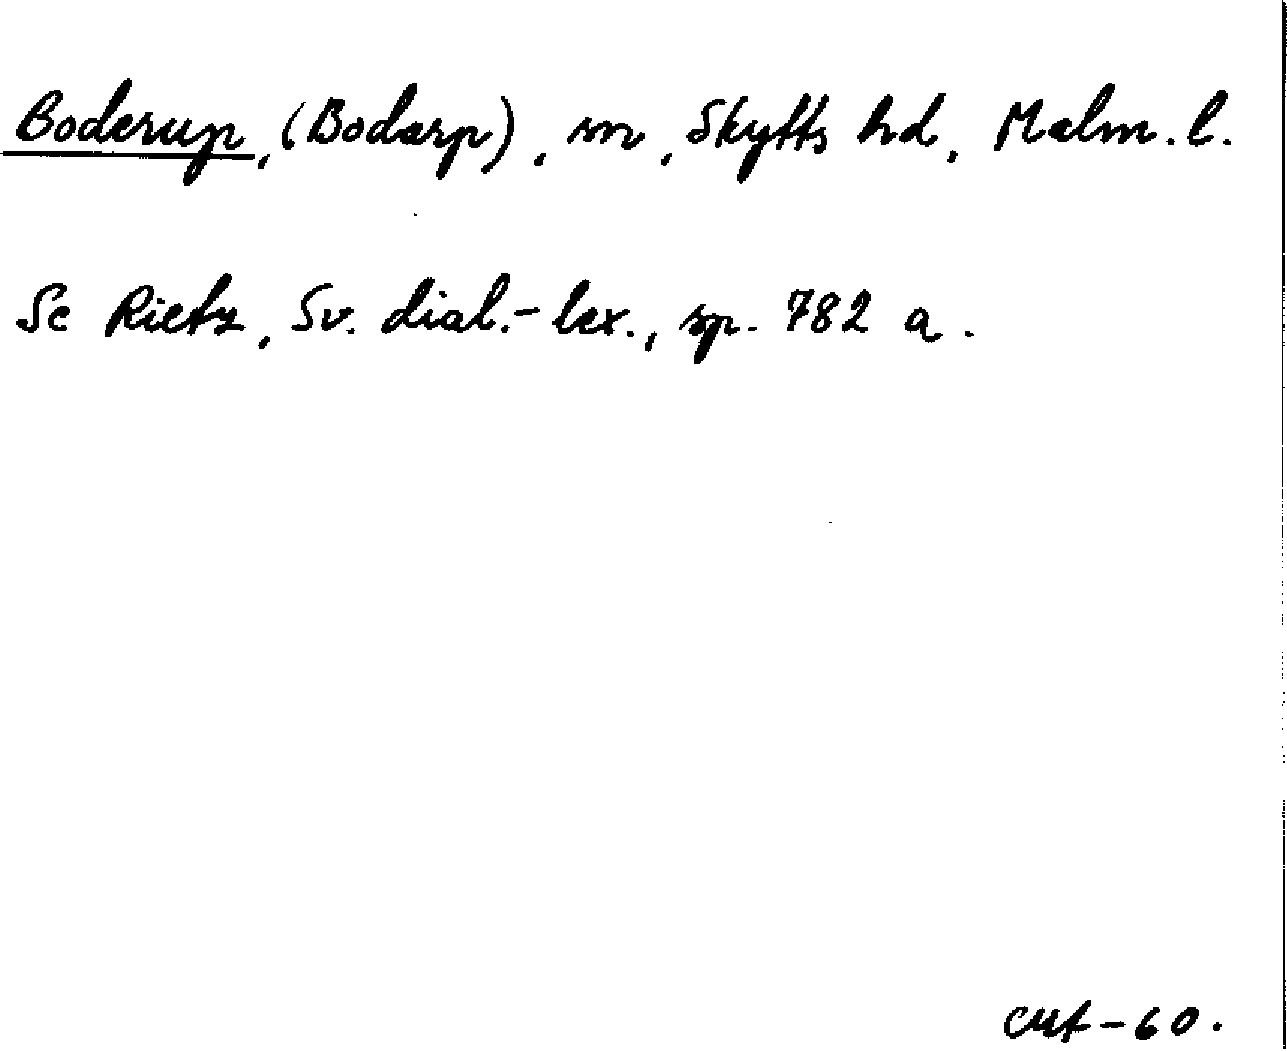 Boderup, (Bodarp), sn, Skytts hd, Malm. l.
Se Rietz, Sv. dial.-lex., sp. 782 a.
CMF-60.